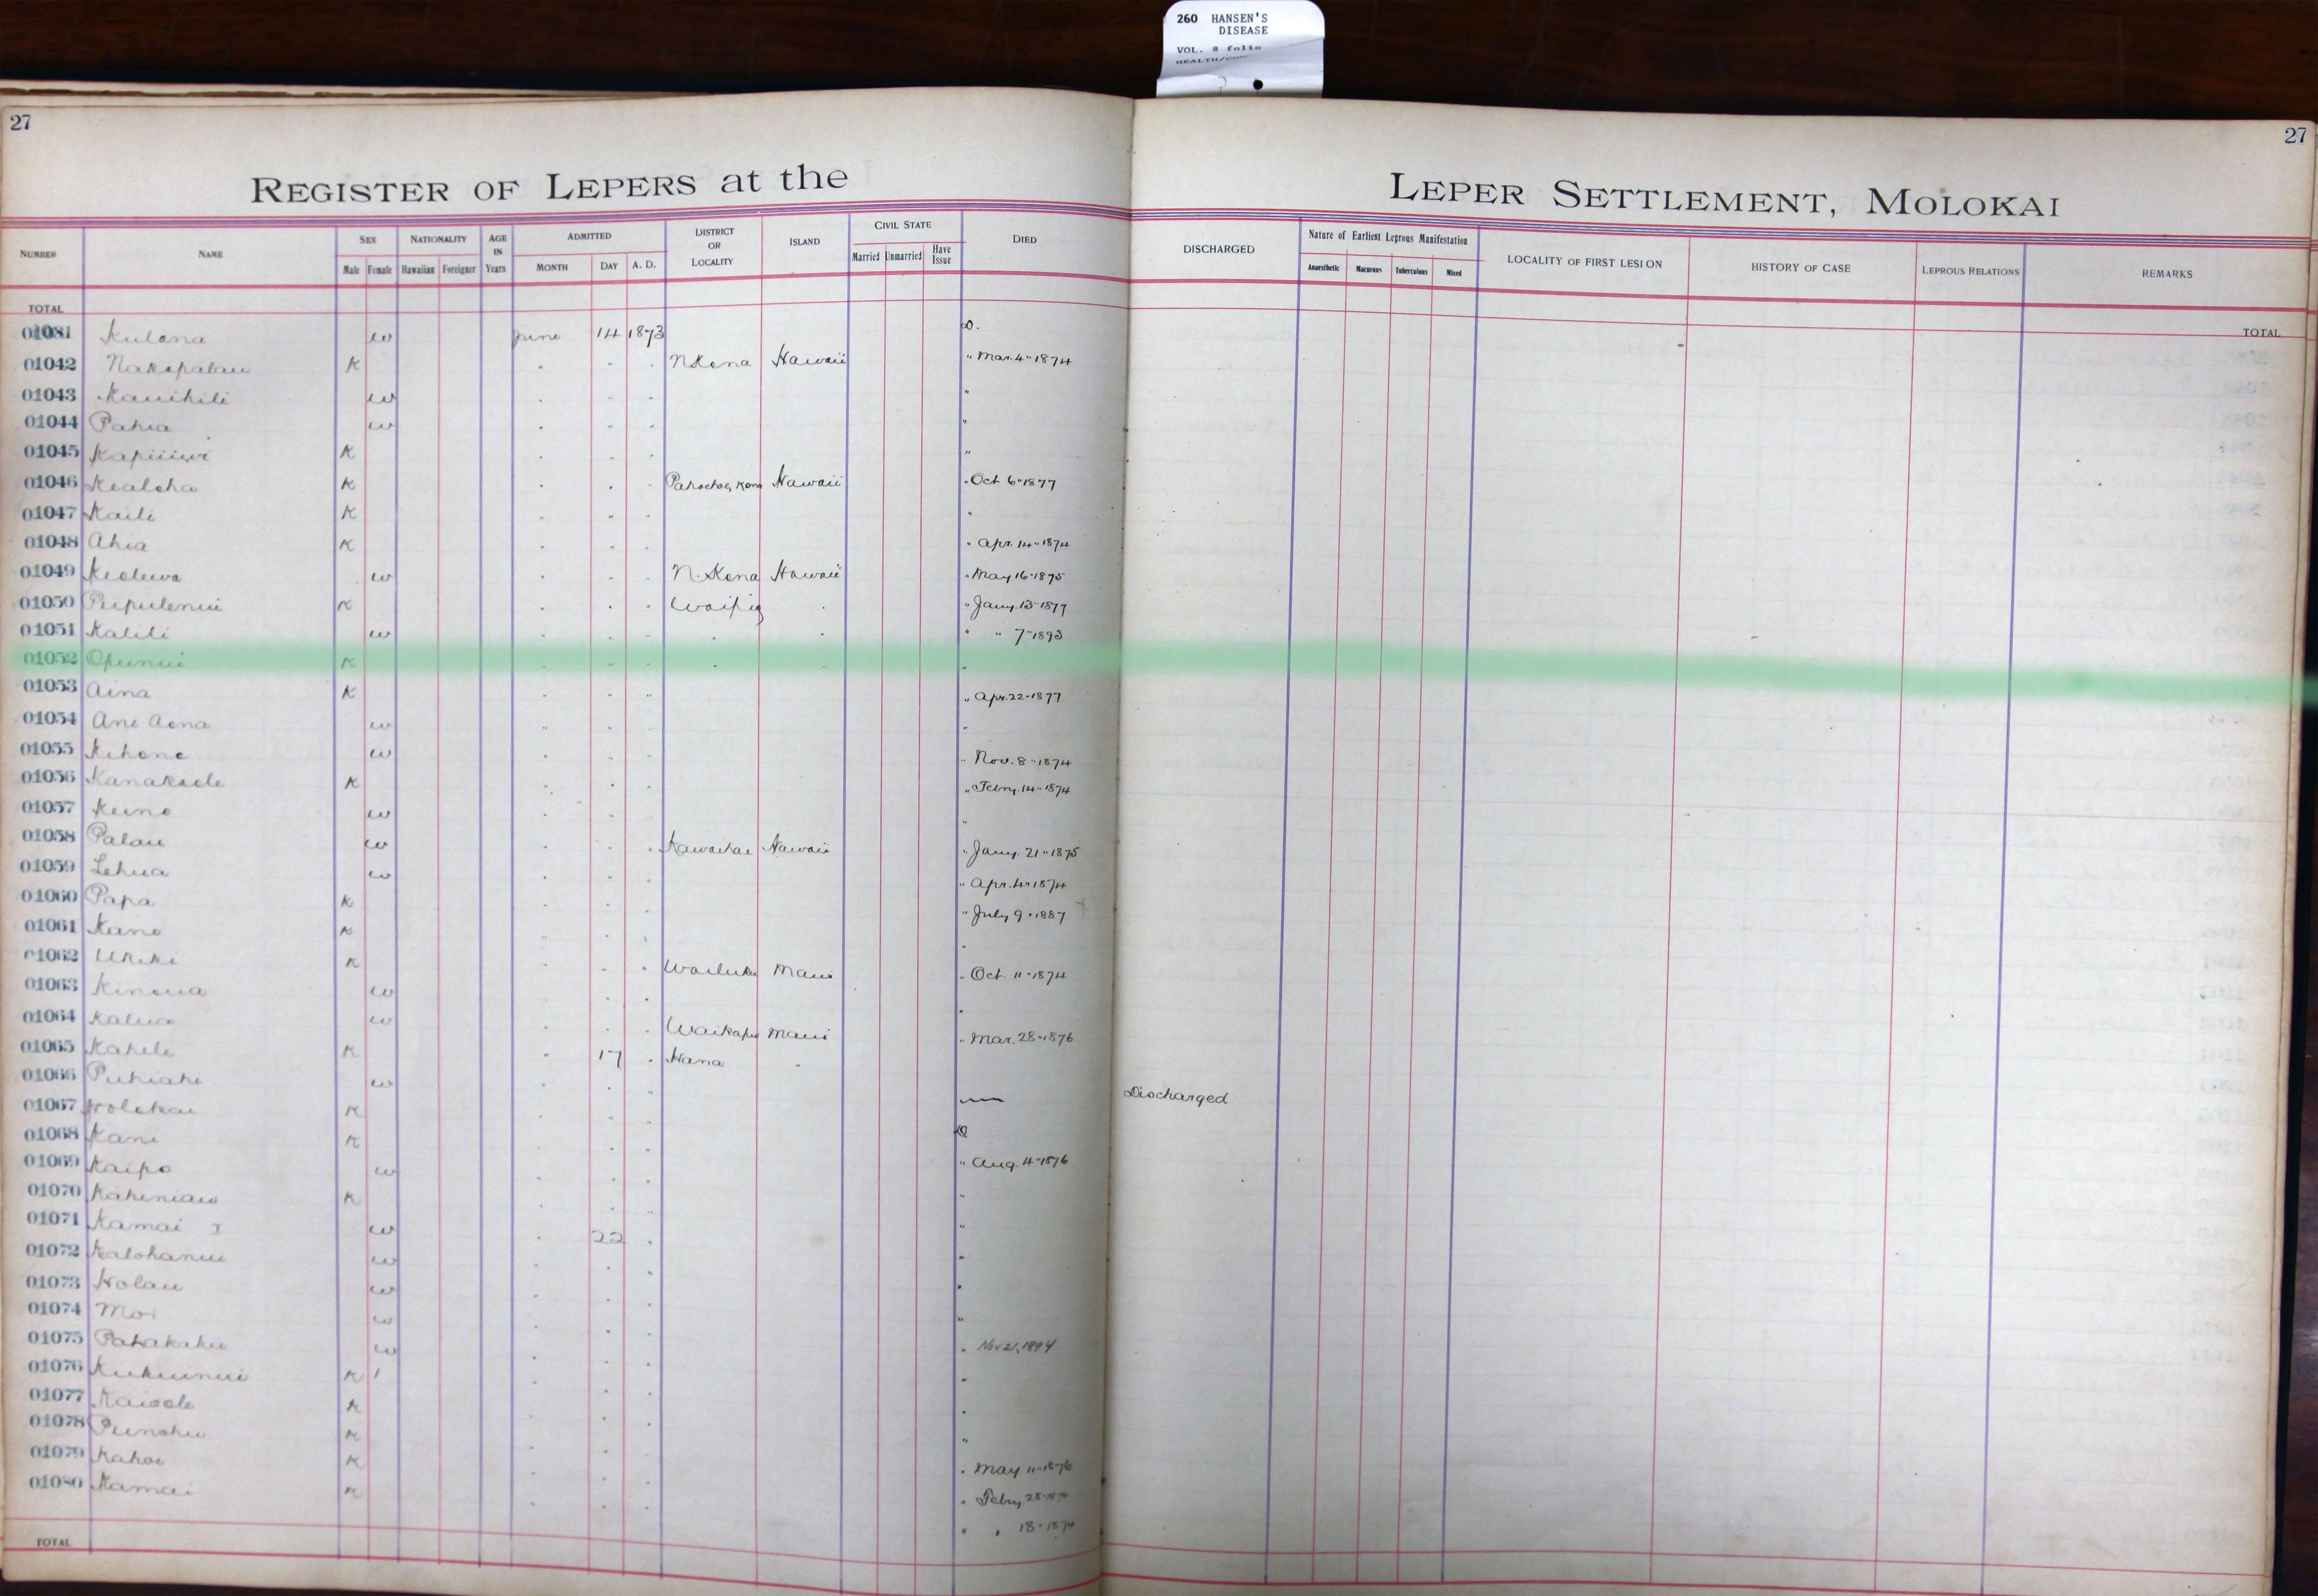 260 HANSEN'S
DISEASE
VOL. 8 folio
27
27
REGISTER OF LEPERS at the LEPER SETTLEMENT, MOLOKAI
NUMBER NAME SEX NATIONALITY AGE IN Years ADMITTED DISTRICT OR LOCALITY ISLAND CIVIL STATE DIED DISCHARGED Nature of Earliest Leprous Manifestation LOCALITY OF FIRST LESION HISTORY OF CASE LEPROUS RELATIONS REMARKS
Male Female Hawaiian Foreigner MONTH DAY A. D. Married Unmarried Have Issue Anaesthetic Macurous Tuberculous Mixed
TOTAL TOTAL
Kulana w June 14 1873 D.
01042 Nakapalau K " " " N Kona Hawaii " Mar. 4 " 1874
01043 Kauihili w " " " "
01044 Pahia w " " " "
01045 K " " " "
01046 Kealoha K " " " Hawaii " Oct 6 " 1877
01047 Kaili K " " " "
01048 Ahia K " " " " Apr. 14 " 1874
01049 w " " " N. Kona Hawaii " May 16 " 1875
01050 Pupulenui K " " " " " Jany. 13 " 1877
01051 Kalili w " " " " " " " 7 " 1893
01052 Opunui K " " " " " "
01053 Aina K " " " " Apr. 22 " 1877
01054 Ane Aona w " " " "
01055 Kihene w " " " " Nov. 8 " 1874
01056 Kanakaole K " " " " Febry. 14 " 1874
01057 Keino w " " " "
01058 Palau w " " " Kawaihae Hawaii " Jany. 21 " 1875
01059 Lehua w " " " " Apr. 4 " 1874
01060 Papa K " " " " July 9 " 1887
01061 Kane K " " " "
01062 Ukiki K " " " Wailuku Maui " Oct. 11 " 1874
01063 Kinoua w " " " "
01064 Kalua w " " " Waikapu Maui " Mar. 28 " 1876
01065 Kahele K " 17 " Hana "
01066 Puhiahi w " " " Discharged
01067 Holokai K " " " D
01068 Kani K " " " " Aug. 4 " 1876
01069 Kaipo w " " " "
01070 Kaheniau K " " " "
01071 Kamai I w " 22 " "
01072 Kalohanui w " " " "
01073 Holau w " " " "
01074 Moi w " " "
01075 Pahakahu w " " " " Nov 21, 1894
01076 Kukuinui K " " " "
01077 Kaiole K " " " "
01078 Punohu K " " " "
01079 Kahoe K " " " " May 11 " 1876
01080 Kamai K " " " " Febry 28
" " 18 " 1874
TOTAL